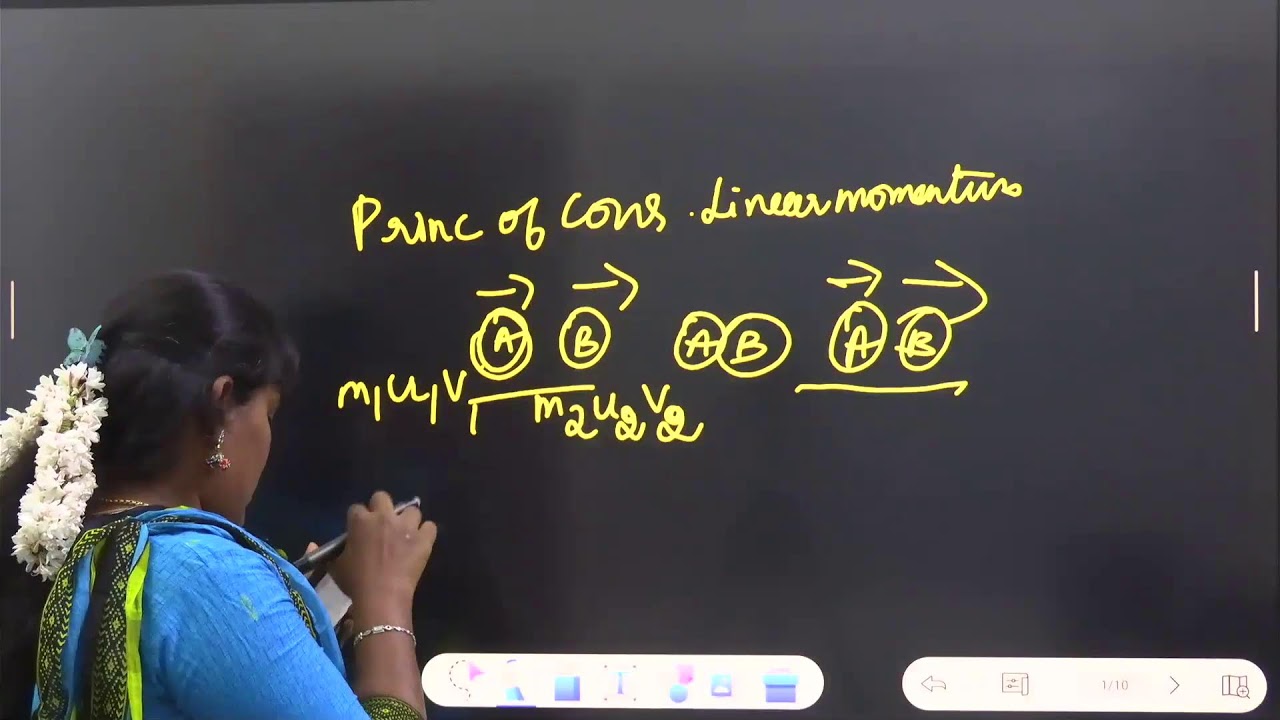 Princ of Cons. Linear momentum
A B A B A B
m1u1v1 m2u2v2
1/10